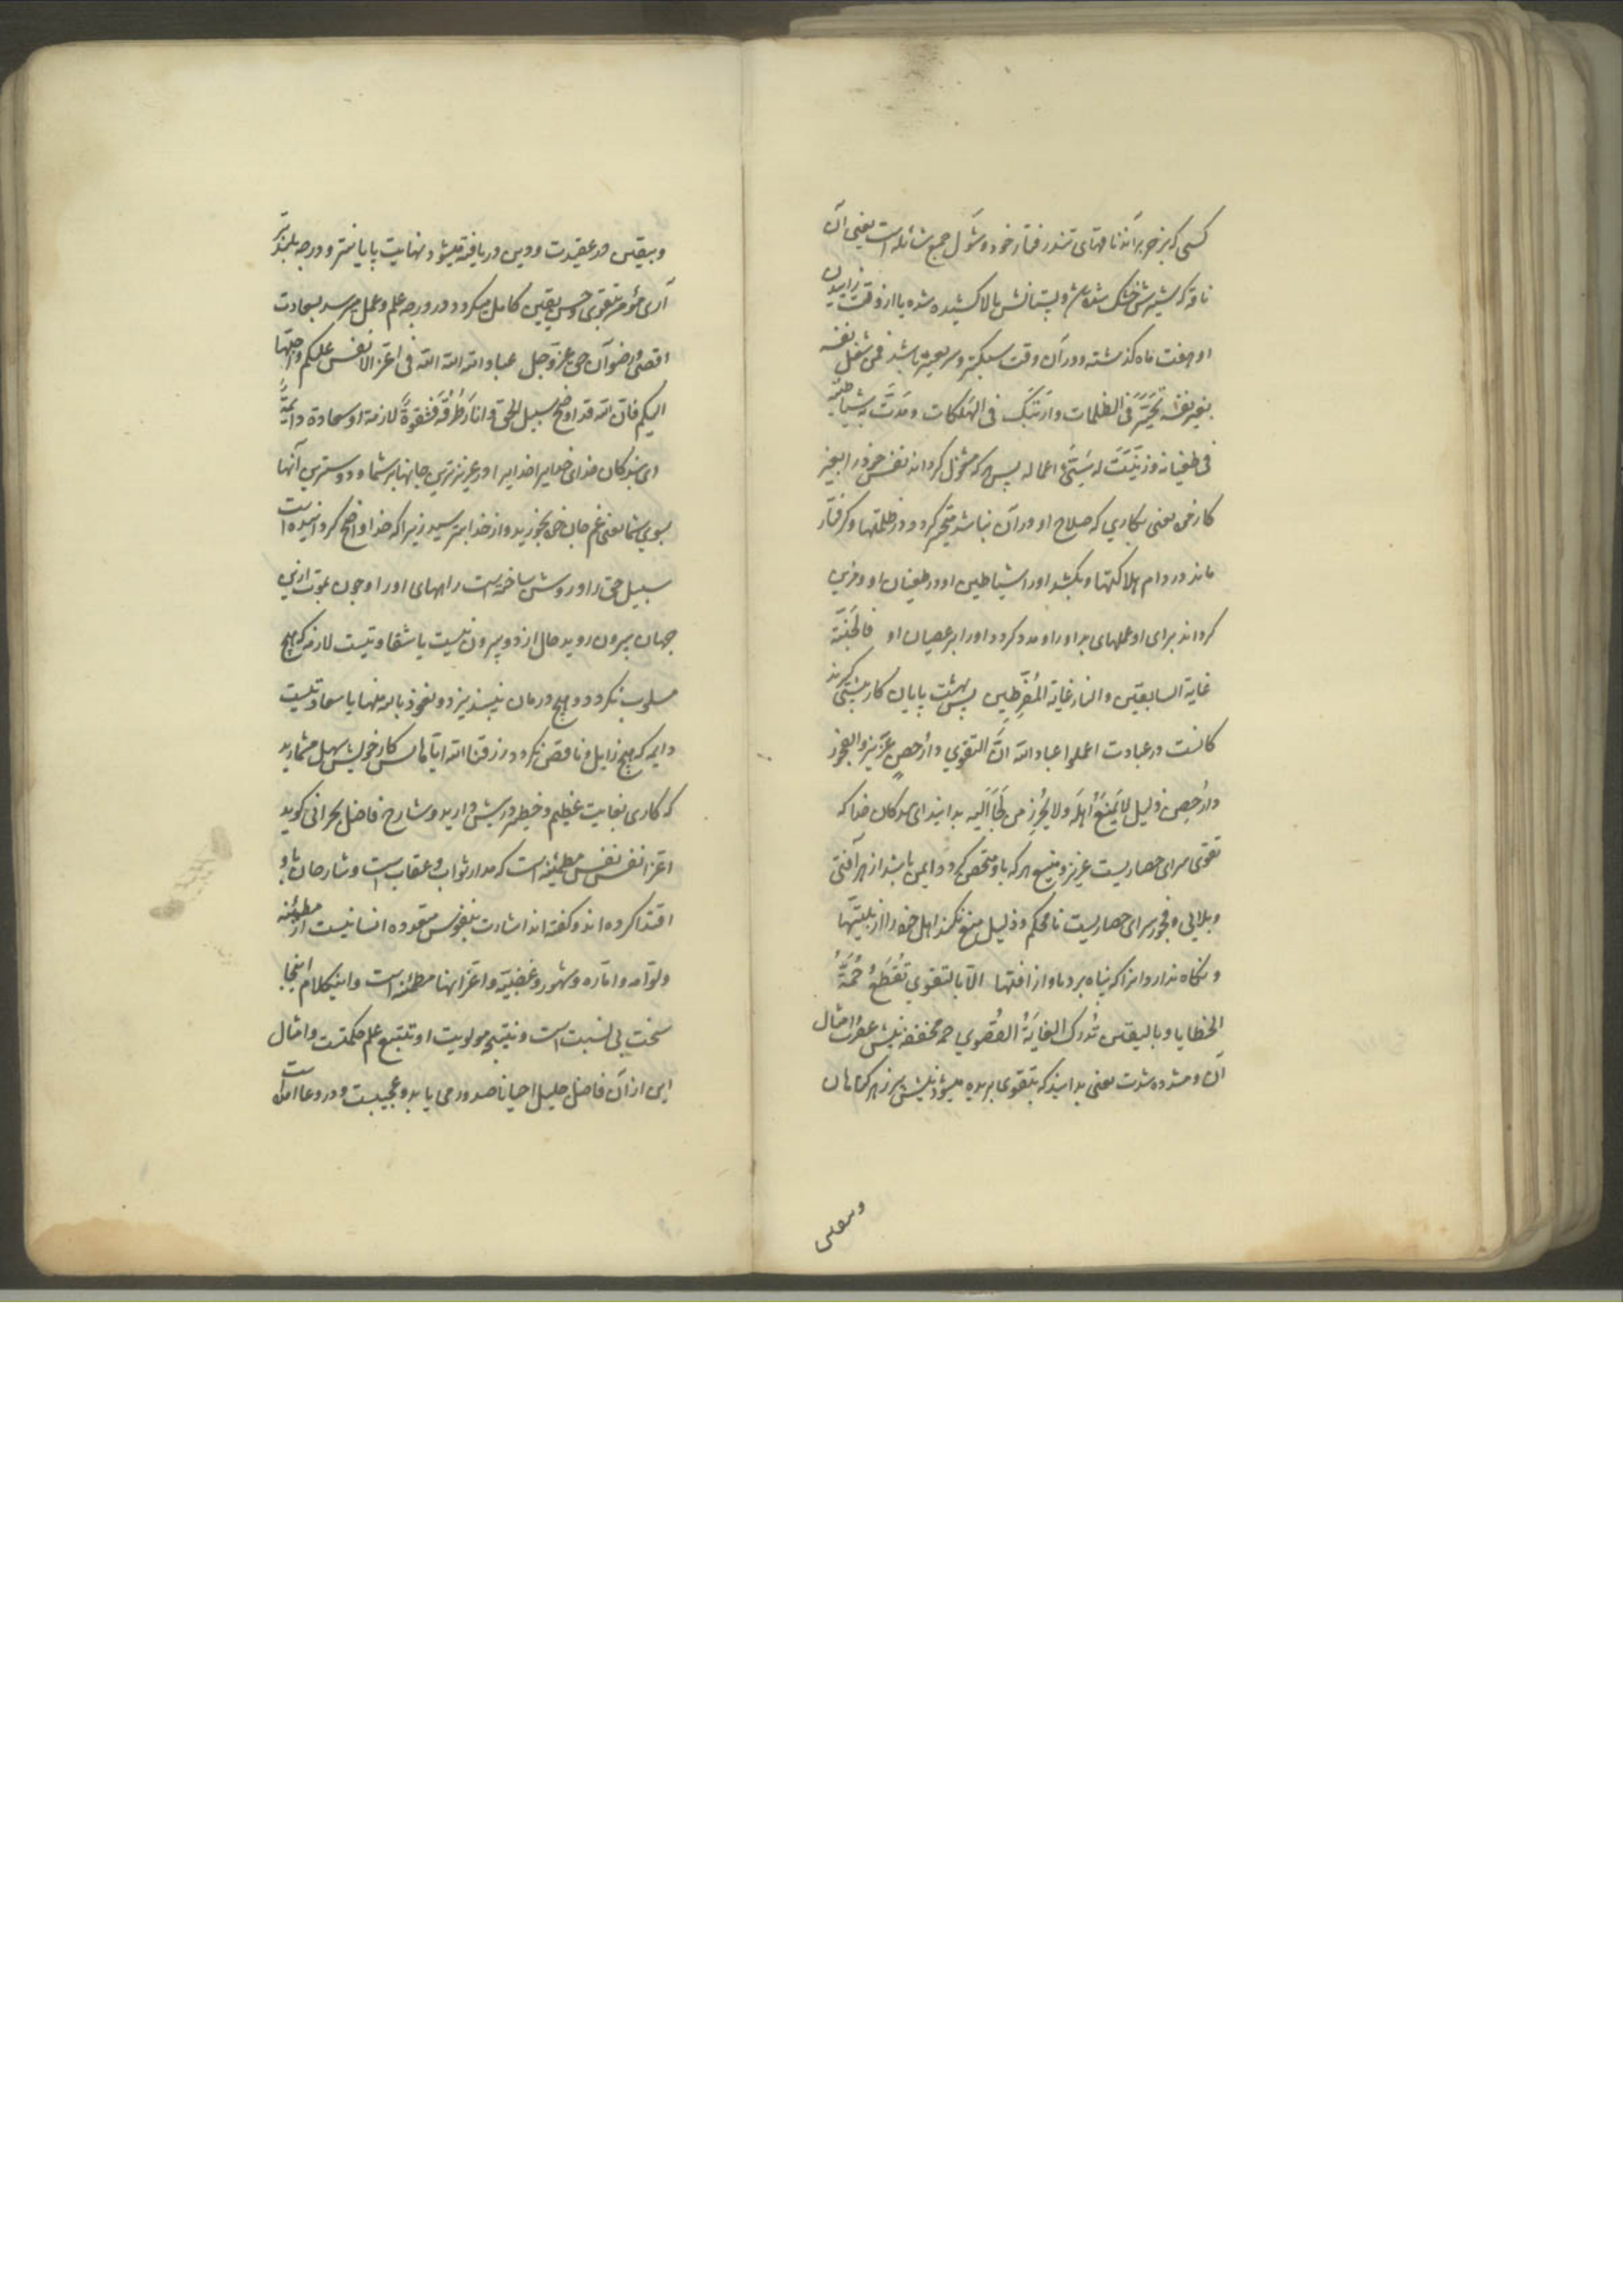 کسی که بزجر براند ناقهای تندرفتار خود و شَوْل جمع شائله است یعنی آن
ناقه که شیرش خشک شده باشد و پستانش بالا کشیده شده یا از وقت زاییدن
او هفت ماه گذشته و در آن وقت سبکتر و سریعتر باشد فمن شغل نفسه
بغیر نفسه تَحَیَّرَ فی الظلمات و ارتَبَکَ فی الهَلَکات و مَدَّت به شیاطینه
فی طغیانه و زَیَّنَت له سَیِّئَ اعماله پس هر که مشغول گرداند نفس خود را بغیر
کار خود یعنی بکاری که صلاح او در آن نباشد متحیر گردد در ظلمتها و گرفتار
ماند در دام هلاکتها و بکشد او را شیاطین او در طغیان او و مزین
گرداند برای او عملهای بد او را و مدد کردد او را بر عصیان او فالجَنَّة
غایة السابقین و النار غایة المُفَرِّطین پس بهشت پایان کار پیشی گیرند
کانست در عبادت اعلموا عباد الله انّ التقوی دارُ حصنٍ عَزیز و الفجور
دارُ حِصن ذلیل لا یَمنَعُ اَهلَه و لا یُحرِز من لَجَأ اِلَیه بدانید ای بندگان خدا که
تقوی سرای حصاریست عزیز و منیع هر که باو متحصن گردد ایمن باشد از هر آفتی
و بلایی و فجور سرای حصاریست نامحکم و ذلیل منع نکند اهل خود را از بلیتها
و نگاه ندارد آنرا که پناه برد باو از آفتها الا بالتقوی تُقطَعُ حُمَةُ
الخطایا و بالیقین تُدرَک الغایَةُ القُصوی حمه مخففه نیش عقرب و امثال
آن و مشدده شدت یعنی بدانید که بتقوی بریده میشود نیش پر زهر گناهان
وبیقین
وبیقین در عقیدت و دین دریافته میشود نهایت پایانتر و درجه بلندتر
آری مؤمن بتقوی و حسن یقین کامل میگردد در درجه علم و عمل میرسد بسعادت
اقصی و رضوان حق عز و جل عباد الله الله الله فی اعزّ الانفس علیکم و احبّها
الیکم فانّ الله قد اوضح سبیل الحق و انارَ طُرُقَه فشِقوةٌ لازمة او سعادة دایمةٌ
ای بندگان خدای خدایرا خدایرا در عزیزترین جانها بر شما و دوسترین آنها
بسوی شما یعنی غم جان خود بخورید و از خدا بترسید زیرا که خدا واضح گردانیده است
سبیل حق را و روشن ساخته است راههای او را و چون بموت ازین
جهان بیرون روید حال از دو بیرون نیست یا شقاوتیست لازمه که هیچ
مسلوب نگردد و هیچ درمان نپذیرد و نعوذ بالله منها یا سعادتیست
دایمه که هیچ زایل و ناقص نگردد رزقنا الله ایاها پس کار خویش سهل مشمارید
که کاری بغایت عظیم و خطیر در پیش دارید و شارح فاضل بحرانی گوید
اعزّ انفس نفس مطمئنه است که مدار ثواب و عقاب است و شارحان باو
اقتدا کرده اند و گفته اند اشارت بنفوس متعدده انسانیست از مطمئنه
و لوامه و اماره و شهویه و غضبیه و اعزّ اینها مطمئنه است و این کلام اینجا
سخت بی نسبت است و نتیجه مولویت او و تتبع علم حکمتست و امثال
این از آن فاضل جلیل احیانا صدور می یابد و عجیبست و در دعا آمده است